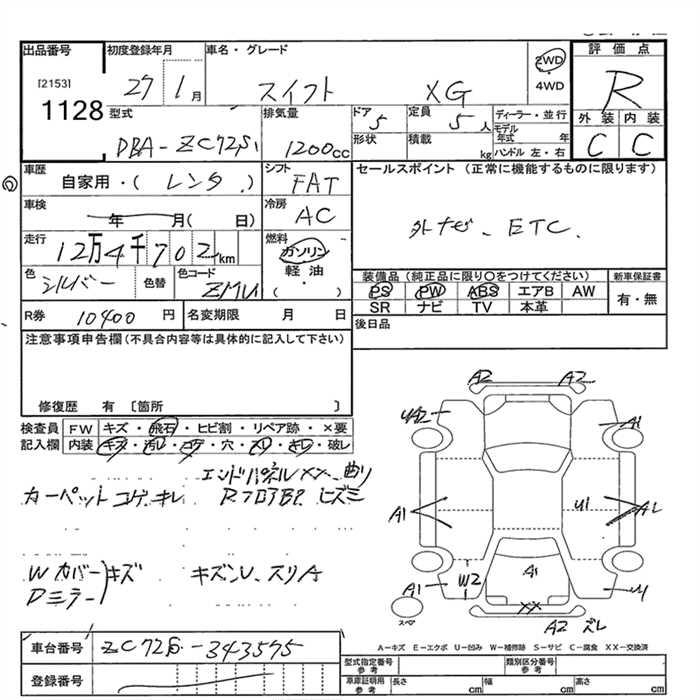 出品番号
[2153]
1128
初度登録年月
27 1月
車名・グレード
スイフト XG
2WD
4WD
評価点
R
外装 内装
C C
型式
DBA-ZC72S
排気量
1200cc
ドア 5
形状
定員 5人
積載 kg
ディーラー・並行
モデル年式 年
ハンドル 左・右
車歴
自家用・(レンタ)
シフト
FAT
車検
年 月( 日)
冷房
AC
走行
12万4千702km
燃料
ガソリン
軽油
( ・ )
色
シルバー
色替
色コード
ZMU
R券 10400円
名変期限 月 日
セールスポイント(正常に機能するものに限ります)
ETC.
装備品(純正品に限り○をつけてください)
PS PW ABS エアB AW
SR ナビ TV 本革
新車保証書
有・無
後日品
注意事項申告欄(不具合内容等は具体的に記入して下さい)
修復歴 有〔箇所 〕
検査員記入欄
FW キズ・飛石・ヒビ割・リペア跡・×要
内装 キズ・汚レ・コゲ・穴・スリ・キレ・破レ
エンドパネル 曲り
カーペット コゲ キレ
ヒズミ
Wカバー キズ
Dミラー
キズ、U、スリA
A2 A2
A1
A1
U1
A1
W2
A1
A1
XX
A2 ズレ
スペア
車台番号
ZC72S-343575
登録番号
A−キズ E−エクボ U−凹み W−補修跡 S−サビ C−腐食 XX−交換済
型式指定番号 参考
類別区分番号 参考
車庫証明用 参考
長さ cm 幅 cm 高さ cm